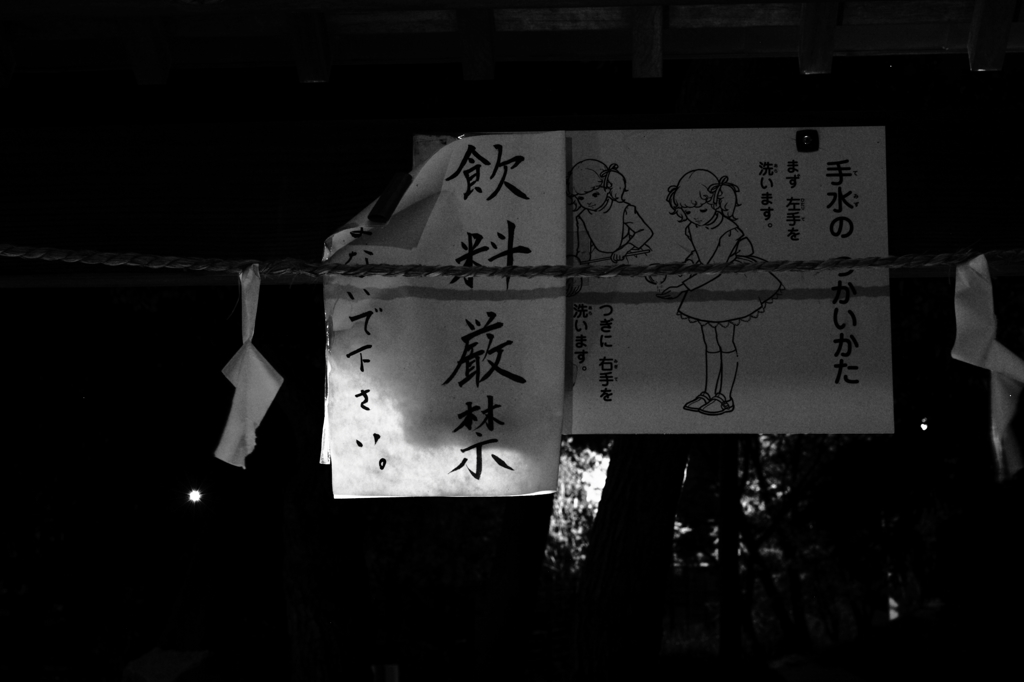 手水の つかいかた
まず 左手を
洗います。
つぎに 右手を
洗います。
飲料厳禁
ないで下さい。